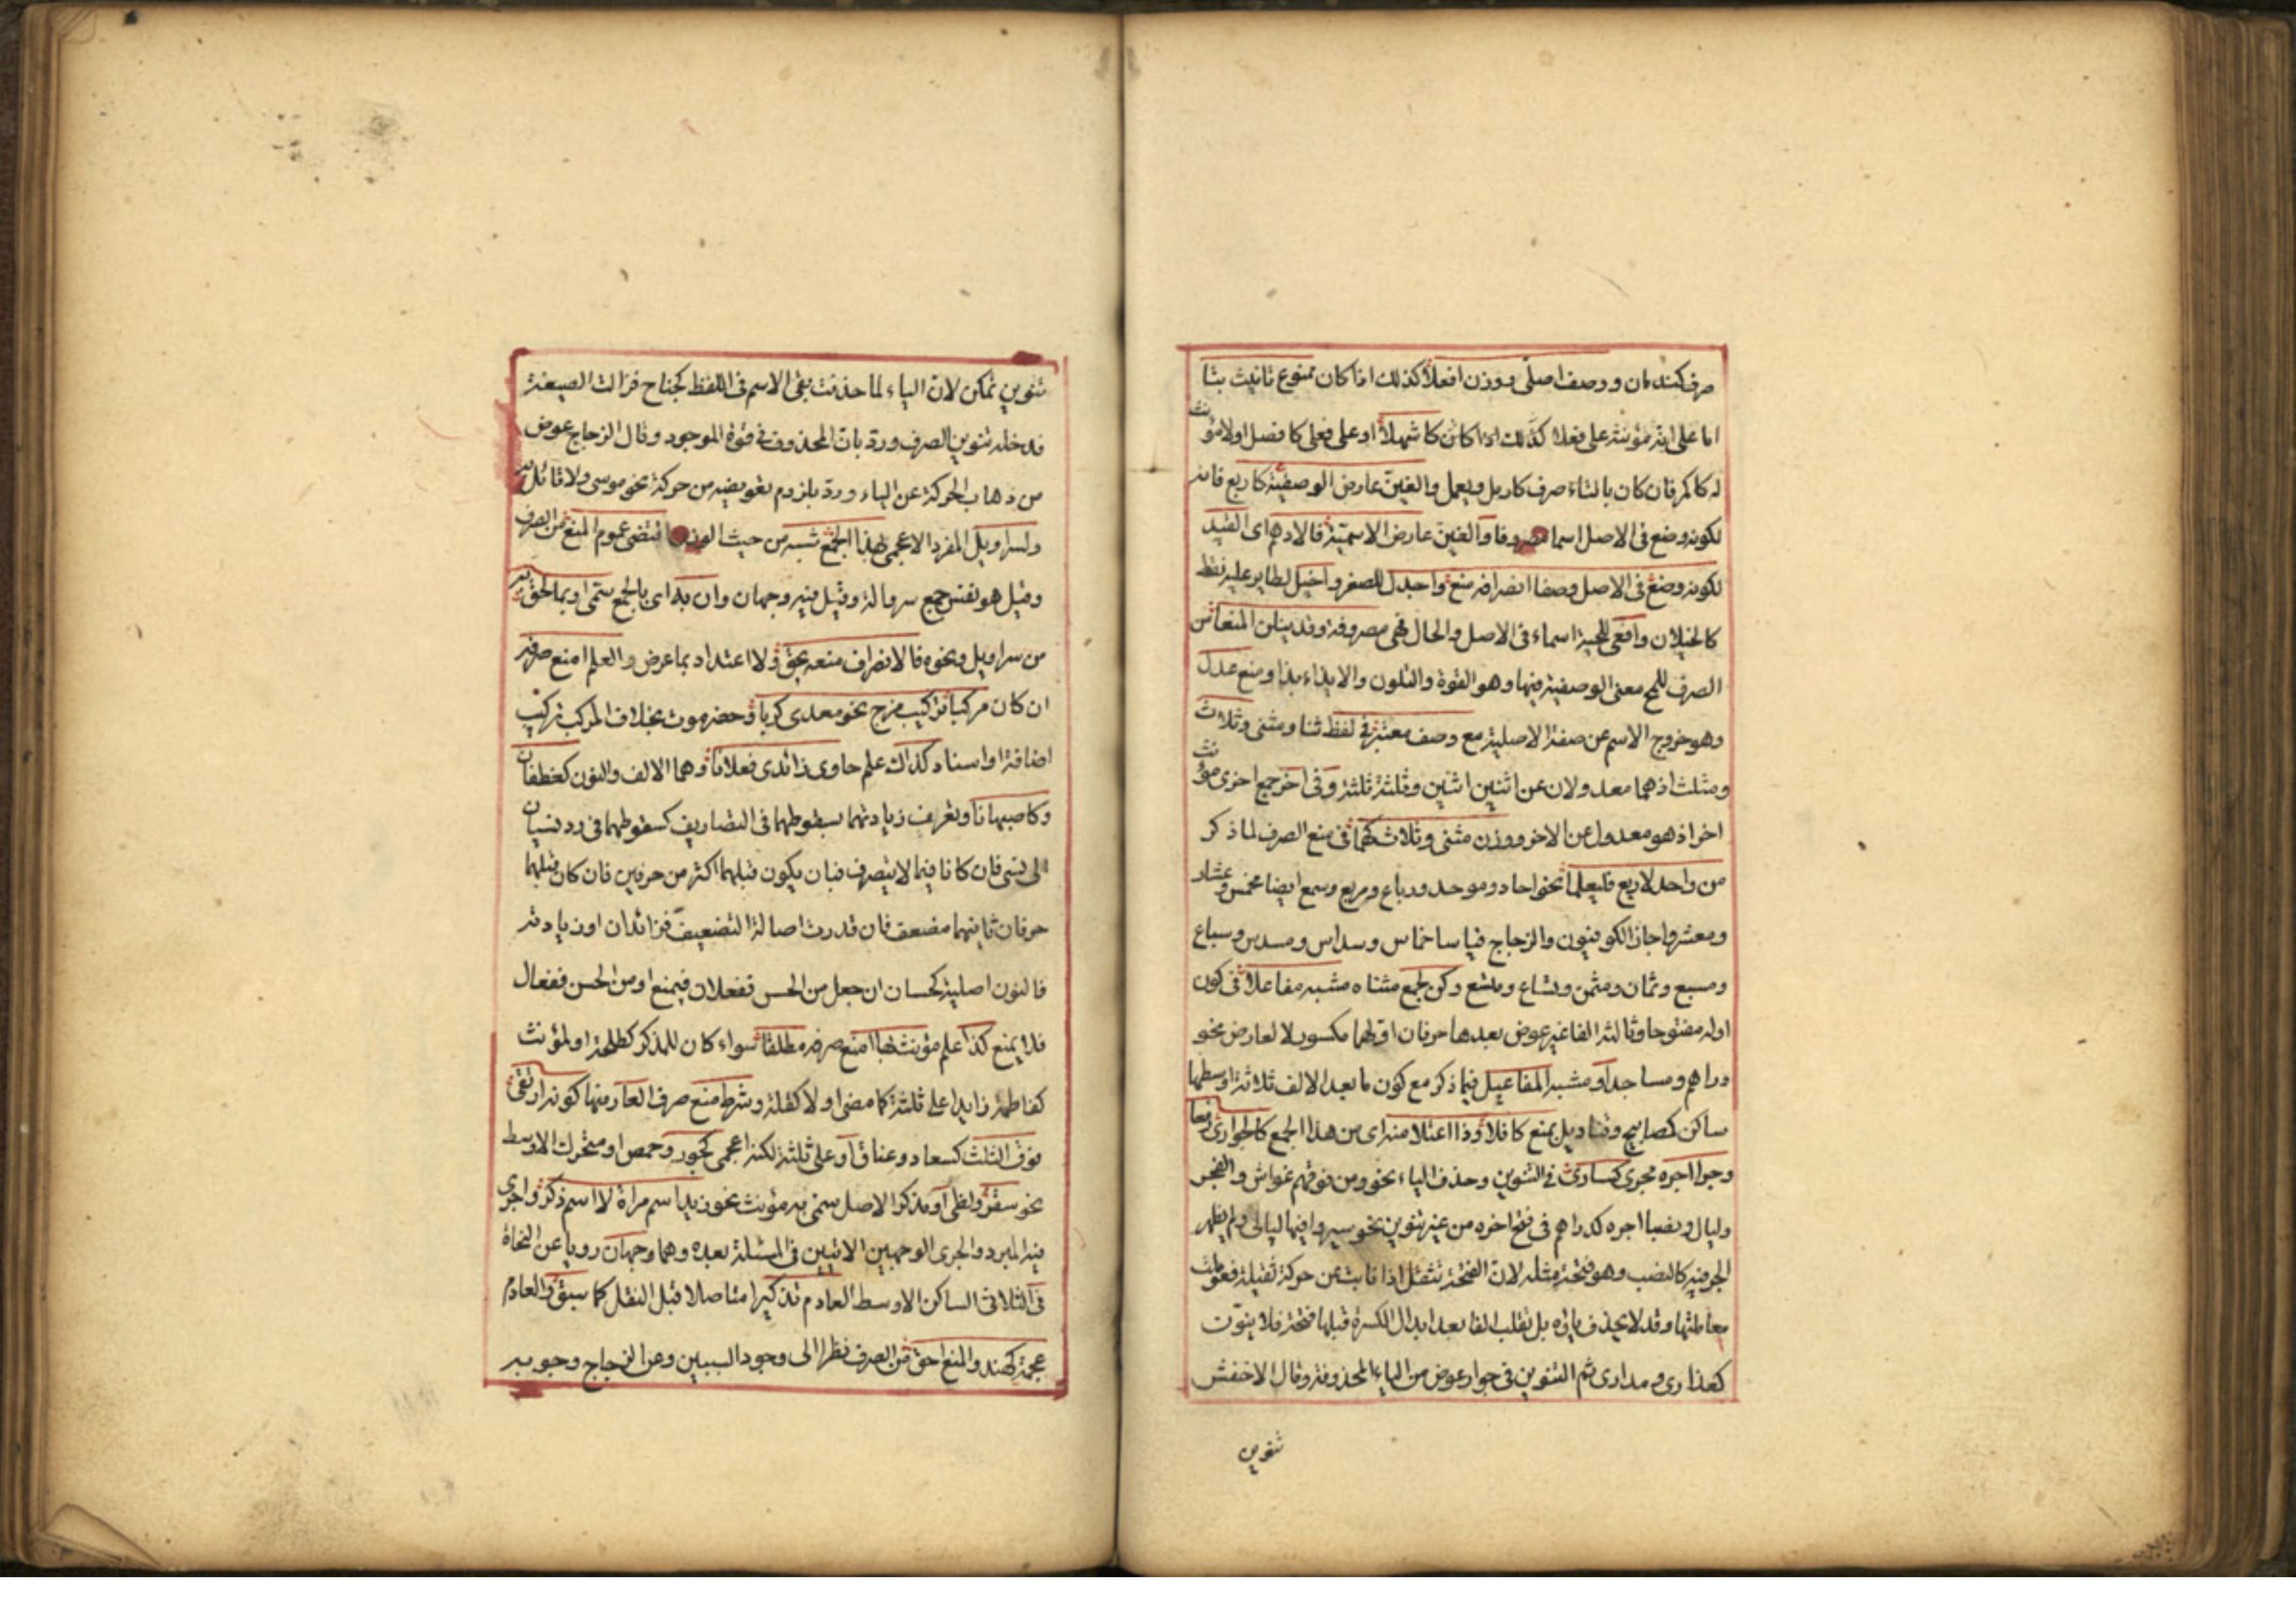 صرف كندمان ووصف اصلى ووزن افعلا كذلك اذا كان ممنوع تانيث بتا
اما على انه مؤنثه على فعلا كذلك اذا كان كاشهلا او على فعلى كافضل اولا مؤنث
له كاكمر فان كان بالتاء صرف كارمل ويعمل والغين عارض الوصفية كاربع فانه
لكونه وضع فى الاصل اسما مصروفا والغين عارض الاسمية فالادهم اى القيد
لكونه وضع فى الاصل وصفا انصرافه منع واجدل للصقر واخيل لطاير عليه نقط
كالخيلان وافعى للحية اسماء فى الاصل والحال فهى مصروفة وقد ينلن المنعا من
الصرف للمح معنى الوصفية فيها وهو القوة والتلون والايذاء بذا ومنع عدل
وهو خروج الاسم عن صفته الاصلية مع وصف معتبر فى لفظ ثنا ومثنى وثلاث
ومثلث اذ هما معدولان عن اثنين اثنين وثلثة ثلثة وفى اخر جمع اخرى مؤنث
اخر اذ هو معدول عن الاخر ووزن مثنى وثلاث كهما فى منع الصرف لما ذكر
من واحد لاربع فليعلما نحو احاد وموحد ورباع ومربع وسمع ايضا مخمس وعشار
ومعشر واجاز الكوفيون والزجاج قياسا خماس وسداس ومسدس وسباع
ومسبع وثمان ومثمن وتساع ومتسع وكن لجمع مشبه مفاعلا فى كون
اوله مفتوحا وثالثه الفا غير عوض بعدها حرفان اولهما مكسور لا لعارض نحو
دراهم ومساجد او مشبه المفاعيل فيما ذكر مع كون ما بعد الالف ثلاثة اوسطها
ساكن كمصابيح وقناديل بمنع كافلا وذا اعتلا منه اى من هذا الجمع كالجوارى رفعا
وجرا اجره مجرى كسارى فى التنوين وحذف الياء نحو ومن فوقهم غواش والفجر
وليال ونصبا اجره كدراهم فى فتح اخره من غير تنوين نحو سيروا فيها ليالى ولم يظهر
الجر فيه كالنصب وهو فتحة مثله لان الفتحة تثقل اذا نابت عن حركة ثقيلة فعوملت
معاملتها وقد لا يحذف يائه بل تقلب الفا بعد ابدال الكسرة قبلها فتحة فلا ينون
كعذارى ومدارى ثم التنوين فى جوار عوض من الياء المحذوفة وقال الاخفش
تنوين
تنوين تمكن لان الياء لما حذفت بقى الاسم فى اللفظ كجناح فزالت الصيغة
فدخله تنوين الصرف ورد بان المحذوف فى قوة الموجود وقال الزجاج عوض
من ذهاب الحركة عن الياء ورد بلزوم تعويضه من حركة نحو موسى ولا قائل به
ولسراويل المفرد الاعجمى بهذا الجمع شبه من حيث الوزن اقتضى عموم المنع من الصرف
وقيل هو نفس جمع سروالة وقيل فيه وجهان وان به اى بالجمع سمى او بما لحق به
من سراويل ونحوه فالانصراف منعه يحق ولا اعتداد بما عرض والعلم امنع صرفه
ان كان مركبا تركيب مزج نحو معدى كربا وحضرموت بخلاف المركب تركيب
اضافة او اسناد كذاك علم حاوى زائدى فعلانا وهما الالف والنون كغطفان
وكاصبهانا وتعرف زيادتهما بسقوطهما فى التصاريف كسقوطهما فى رد نسيان
الى نسى فان كانا فيما لا يتصرف فبان يكون قبلهما اكثر من حرفين فان كان قبلهما
حرفان ثانيهما مضعف فان قدرت اصالة التضعيف فزائدان او زيادته
فالنون اصلية كحسان ان جعل من الحس ففعلان فيمنع او من الحسن ففعال
فلا يمنع كذا علم مؤنث بهاء امنع صرفه مطلقا سواء كان للمذكر كطلحة او لمؤنث
كفاطمة زايدا على ثلثة كما مضى او لا كقلة وشرط منع صرف العار منها كونه ارتقى
فوق الثلث كسعاد وعناق او على ثلثة لكنه اعجمى كجور وحمص او متحرك الاوسط
نحو سقر ولظى او مذكر الاصل سمى به مؤنث نحو زيد اسم مراة لا اسم ذكر واجرى
فيه المبرد والجرمى الوجهين الاتيين فى المسئلة بعده وهما وجهان رويا عن النحاة
فى الثلاثى الساكن الاوسط العادم تذكيرا متاصلا قبل النقل كما سبق والعادم
عجمة كهند والمنع احق من الصرف نظرا الى وجود السببين وعن الزجاج وجوبه